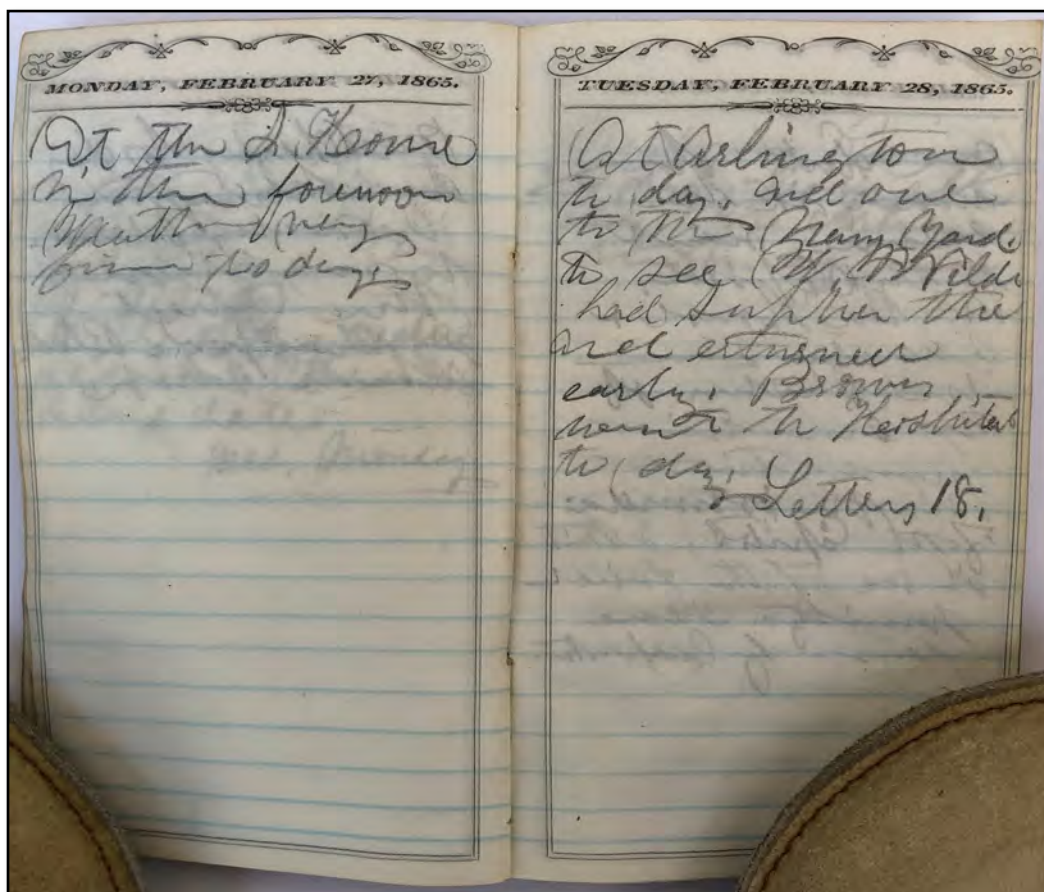 MONDAY, FEBRUARY 27, 1865.
At the S. Home
in the forenoon
Weather very
fine to day,
TUESDAY, FEBRUARY 28, 1865.
At Arlington
to day, and one
to the Navy Yard.
to see
had supper there
and returned
early, Brown
went to Hospital
to day,
Letters 18,